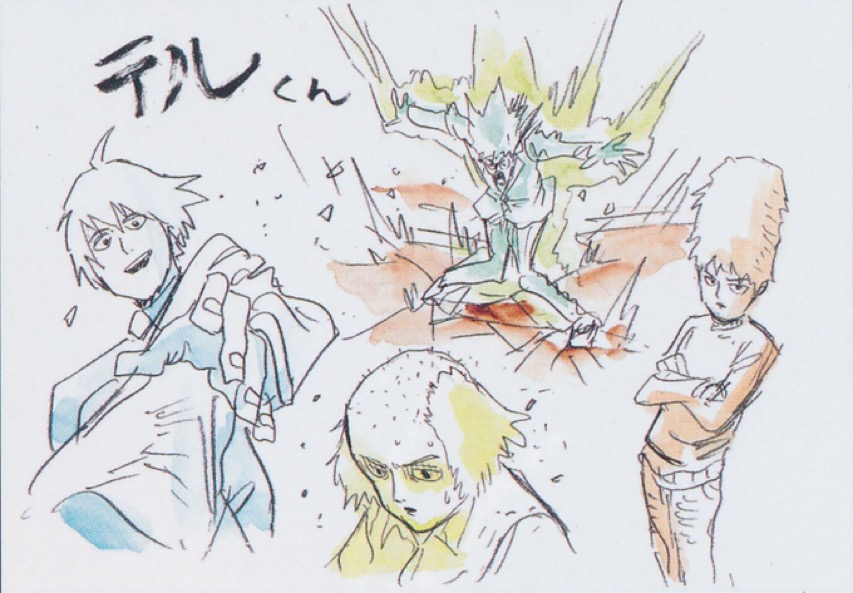 テルくん